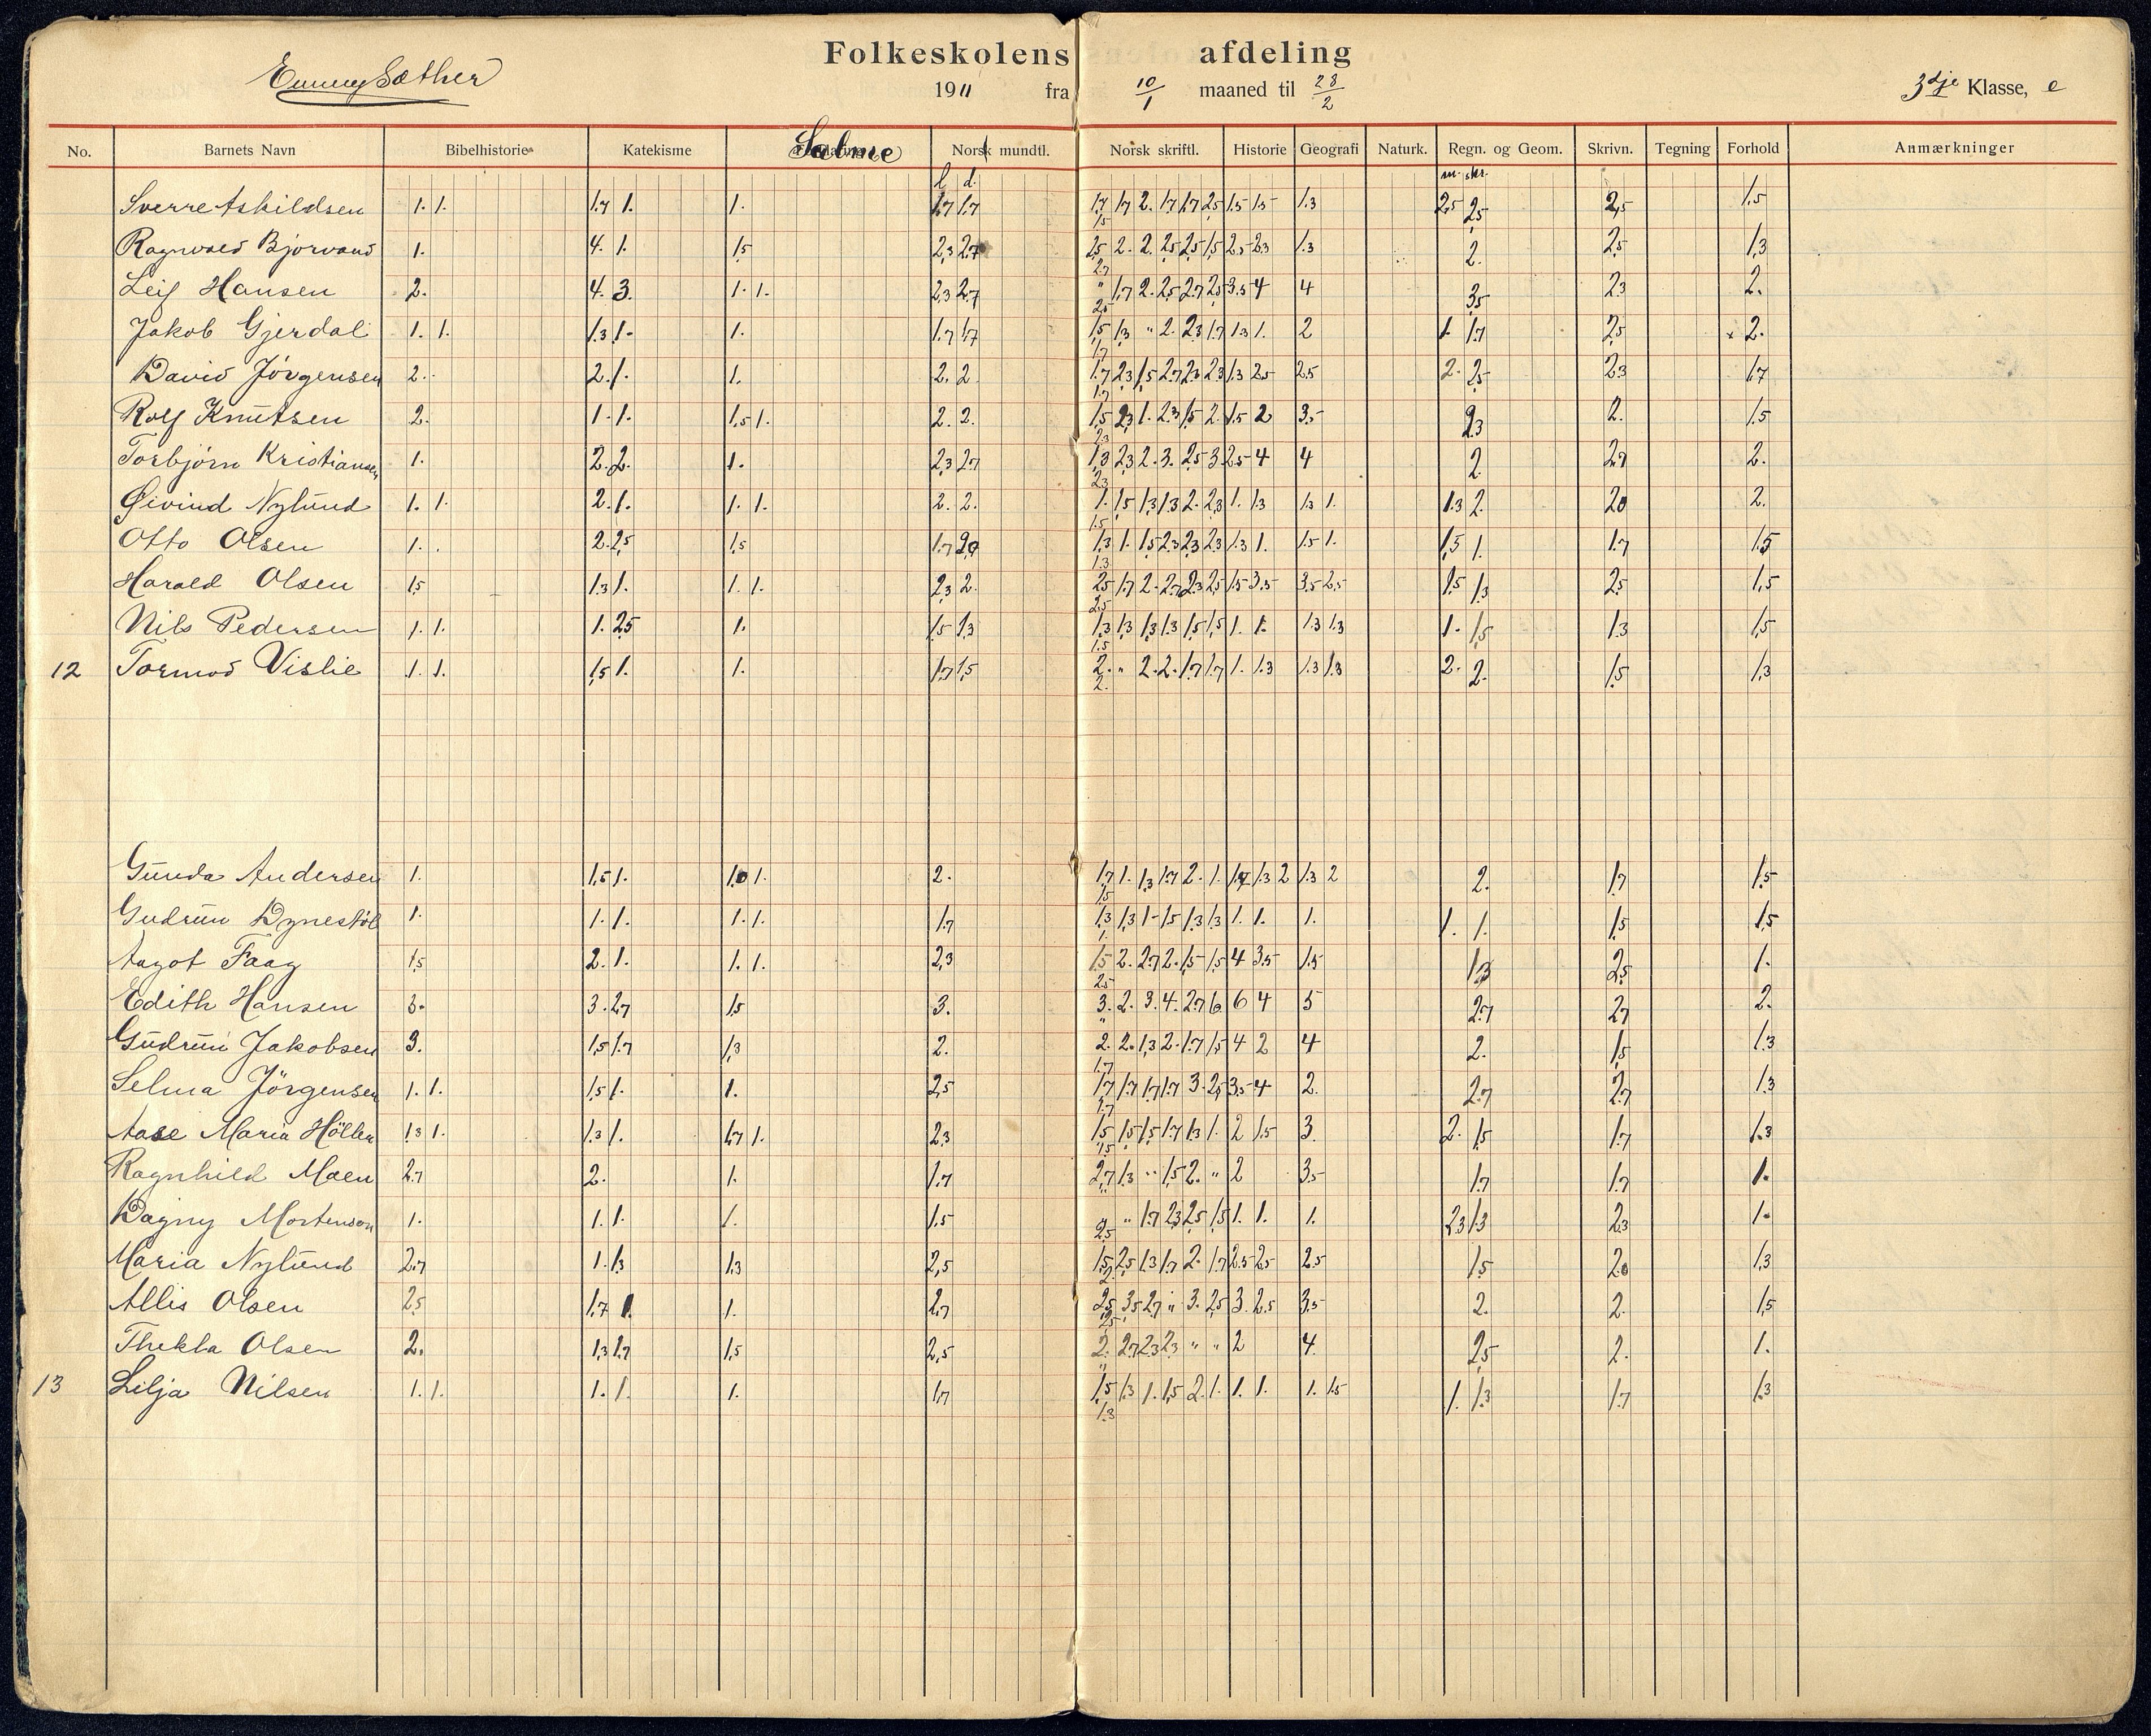 Folkeskolens afdeling
Emmy Sæther
1911 fra 10/1 maaned til 28/2
3dje Klasse, e
No. Barnets Navn Bibelhistorie Katekisme Salme Norsk mundtl. Norsk skriftl. Historie Geografi Naturk. Regn. og Geom. Skrivn. Tegning Forhold Anmærkninger
l d. m. skr.
Sverre Askildsen 1. 1. 1.7 1. 1. 1.7 1.7 1,7 1,7 2. 1,7 1,7 2,5 1.5 1.5 1.3 2,5 2,5 2,5 1.5
1,5
Ragnvald Bjorvand 1. 4. 1. 1,5 2,3 2,7 2,5 2. 2. 2,5 2,5 1,5 2.5 2.3 1.3 2. 2,5 1,3
2,7
Leif Hansen 2. 4. 3. 1. 1. 2,3 2,7 " 1,7 2. 2,5 2,7 2,5 3.5 4 4 3,5 2,3 2.
2,5
Jakob Gjerdal 1. 1. 1.3 1. 1. 1.7 1,7 1,5 1,3 " 2. 2,3 1,7 1.3 1. 2 1. 1,7 2,5 2.
1,7
David Jörgensen 2. 2. 1. 1. 2. 2 1.7 2,3 1,5 2,7 2,3 2,3 1.3 2.5 2.5 2. 2,5 2,3 1,7
1,7
Rolf Knutsen 2. 1. 1. 1,5 1. 2. 2. 1,5 2,3 1. 2,3 1,5 2. 1.5 2 3.5 2,3 2. 1.5
2,3
Torbjörn Kristiansen 1. 2. 2. 1. 2,3 2,7 1,3 2,3 2. 3. 2,5 3. 2.5 4 4 2 2,7 2.
2,3
Øivind Nylund 1. 1. 2. 1. 1. 1. 2. 2. 1. 1,5 1,3 1,3 2. 2,3 1. 1.3 1.3 1. 1.3 2. 20 2.
1.5
Otto Olsen 1. 2. 2,5 1,5 1.7 2,0 1,3 1. 1,5 2,3 2,3 2,3 1.3 1. 1.5 1. 1,5 1. 1,7 1.5
1.3
Harald Olsen 1,5 1.3 1. 1. 1. 2,3 2. 2,5 1,7 2. 2,7 2,3 2,5 1.5 3.5 3.5 2.5 1.5 1,3 2,5 1,5
2,5
Nils Pedersen 1. 1. 1. 2,5 1. 1,5 1,3 1,3 1,3 1,3 1,3 1,5 1,5 1. 1. 1.3 1.3 1. 1,5 1.3 1,5
1.5
12 Tormod Vislie 1. 1. 1,5 1. 1. 1,7 1,5 2. " 2. 2. 1,7 1,7 1. 1.3 1.3 1.3 2. 2. 1,5 1,3
2.
Gunda Andersen 1. 1,5 1. 1,0 1. 2. 1,7 1. 1,3 1,7 2. 1. 1.7 1.3 2 1.3 2 2. 1,7 1.5
1,5
Gudrun Dynestöl 1. 1. 1. 1. 1. 1,7 1,3 1,3 1. 1,5 1,3 1,3 1. 1. 1. 1. 1. 1,5 1,5
1.
Aagot Faag 1,5 2. 1. 1. 1. 2,3 1,5 2. 2,7 2. 1,5 1,5 4 3.5 1.5 1,3 2,5 1.
2,5
Edith Hansen 3. 3. 2,7 1,5 3. 3. 2. 3. 4. 2,7 6. 6 4 5 2,7 2,7 2.
"
Gudrun Jakobsen 3. 1,5 1.7 1,3 2. 2. 2. 1,3 2. 1,7 1,5 4 2 4 2. 1,5 1.3
1,7
Selma Jörgensen 1. 1. 1,5 1. 1. 2,5 1,7 1,7 1,7 1,7 3. 2,5 3.5 4 2. 2,7 2,7 1.3
1,7
Aase Maria Höllen 1,3 1. 1.3 1. 1,7 1. 2,3 1,5 1,5 1,5 1,7 1,3 1. 2 1.5 3. 2. 1,5 1,7 1.3
1,5
Ragnhild Moen 2,7 2. 1. 1.7 2,7 1,3 " 1,5 2. " 2 3.5 1,7 1.7 1.
"
Dagny Mortenson 1. 1. 1. 1. 1.5 " 1.7 2,3 2,5 1,5 1. 1. 1. 2.3 1.3 2,3 1.
2,5
Maria Nylund 2,7 1. 1,3 1,3 2,5 1,5 2,5 1,3 1,7 2. 1,7 2.5 2.5 2.5 1,5 2.0 1,3
2.
Allis Olsen 2,5 1,7 1. 1. 2,7 2,5 3,5 2,7 " 3. 2,5 3. 2.5 3.5 2. 2. 1,5
2,5
Thekla Olsen 2. 1,3 1,7 1,5 2,5 2. 2,7 2,3 2,3 " " 2 4. 2,5 2. 1.
"
13 Lilja Nilsen 1. 1. 1. 1. 1. 1,7 1,5 1,3 1. 1,5 2. 1. 1. 1. 1. 1.5 1. 1.3 1,7 1.3
1.3